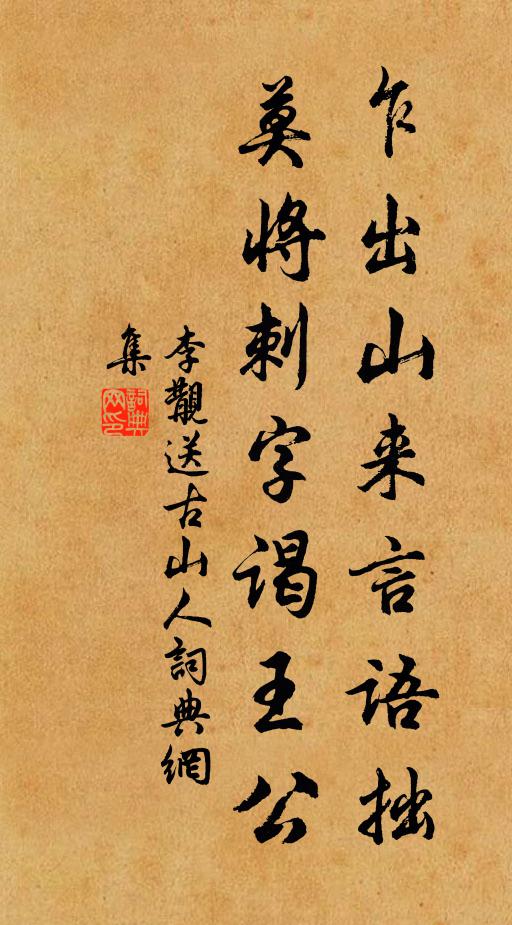 乍出山来言语拙
莫将刺字谒王公
李覯送古山人詞典網
集
詞典
网印